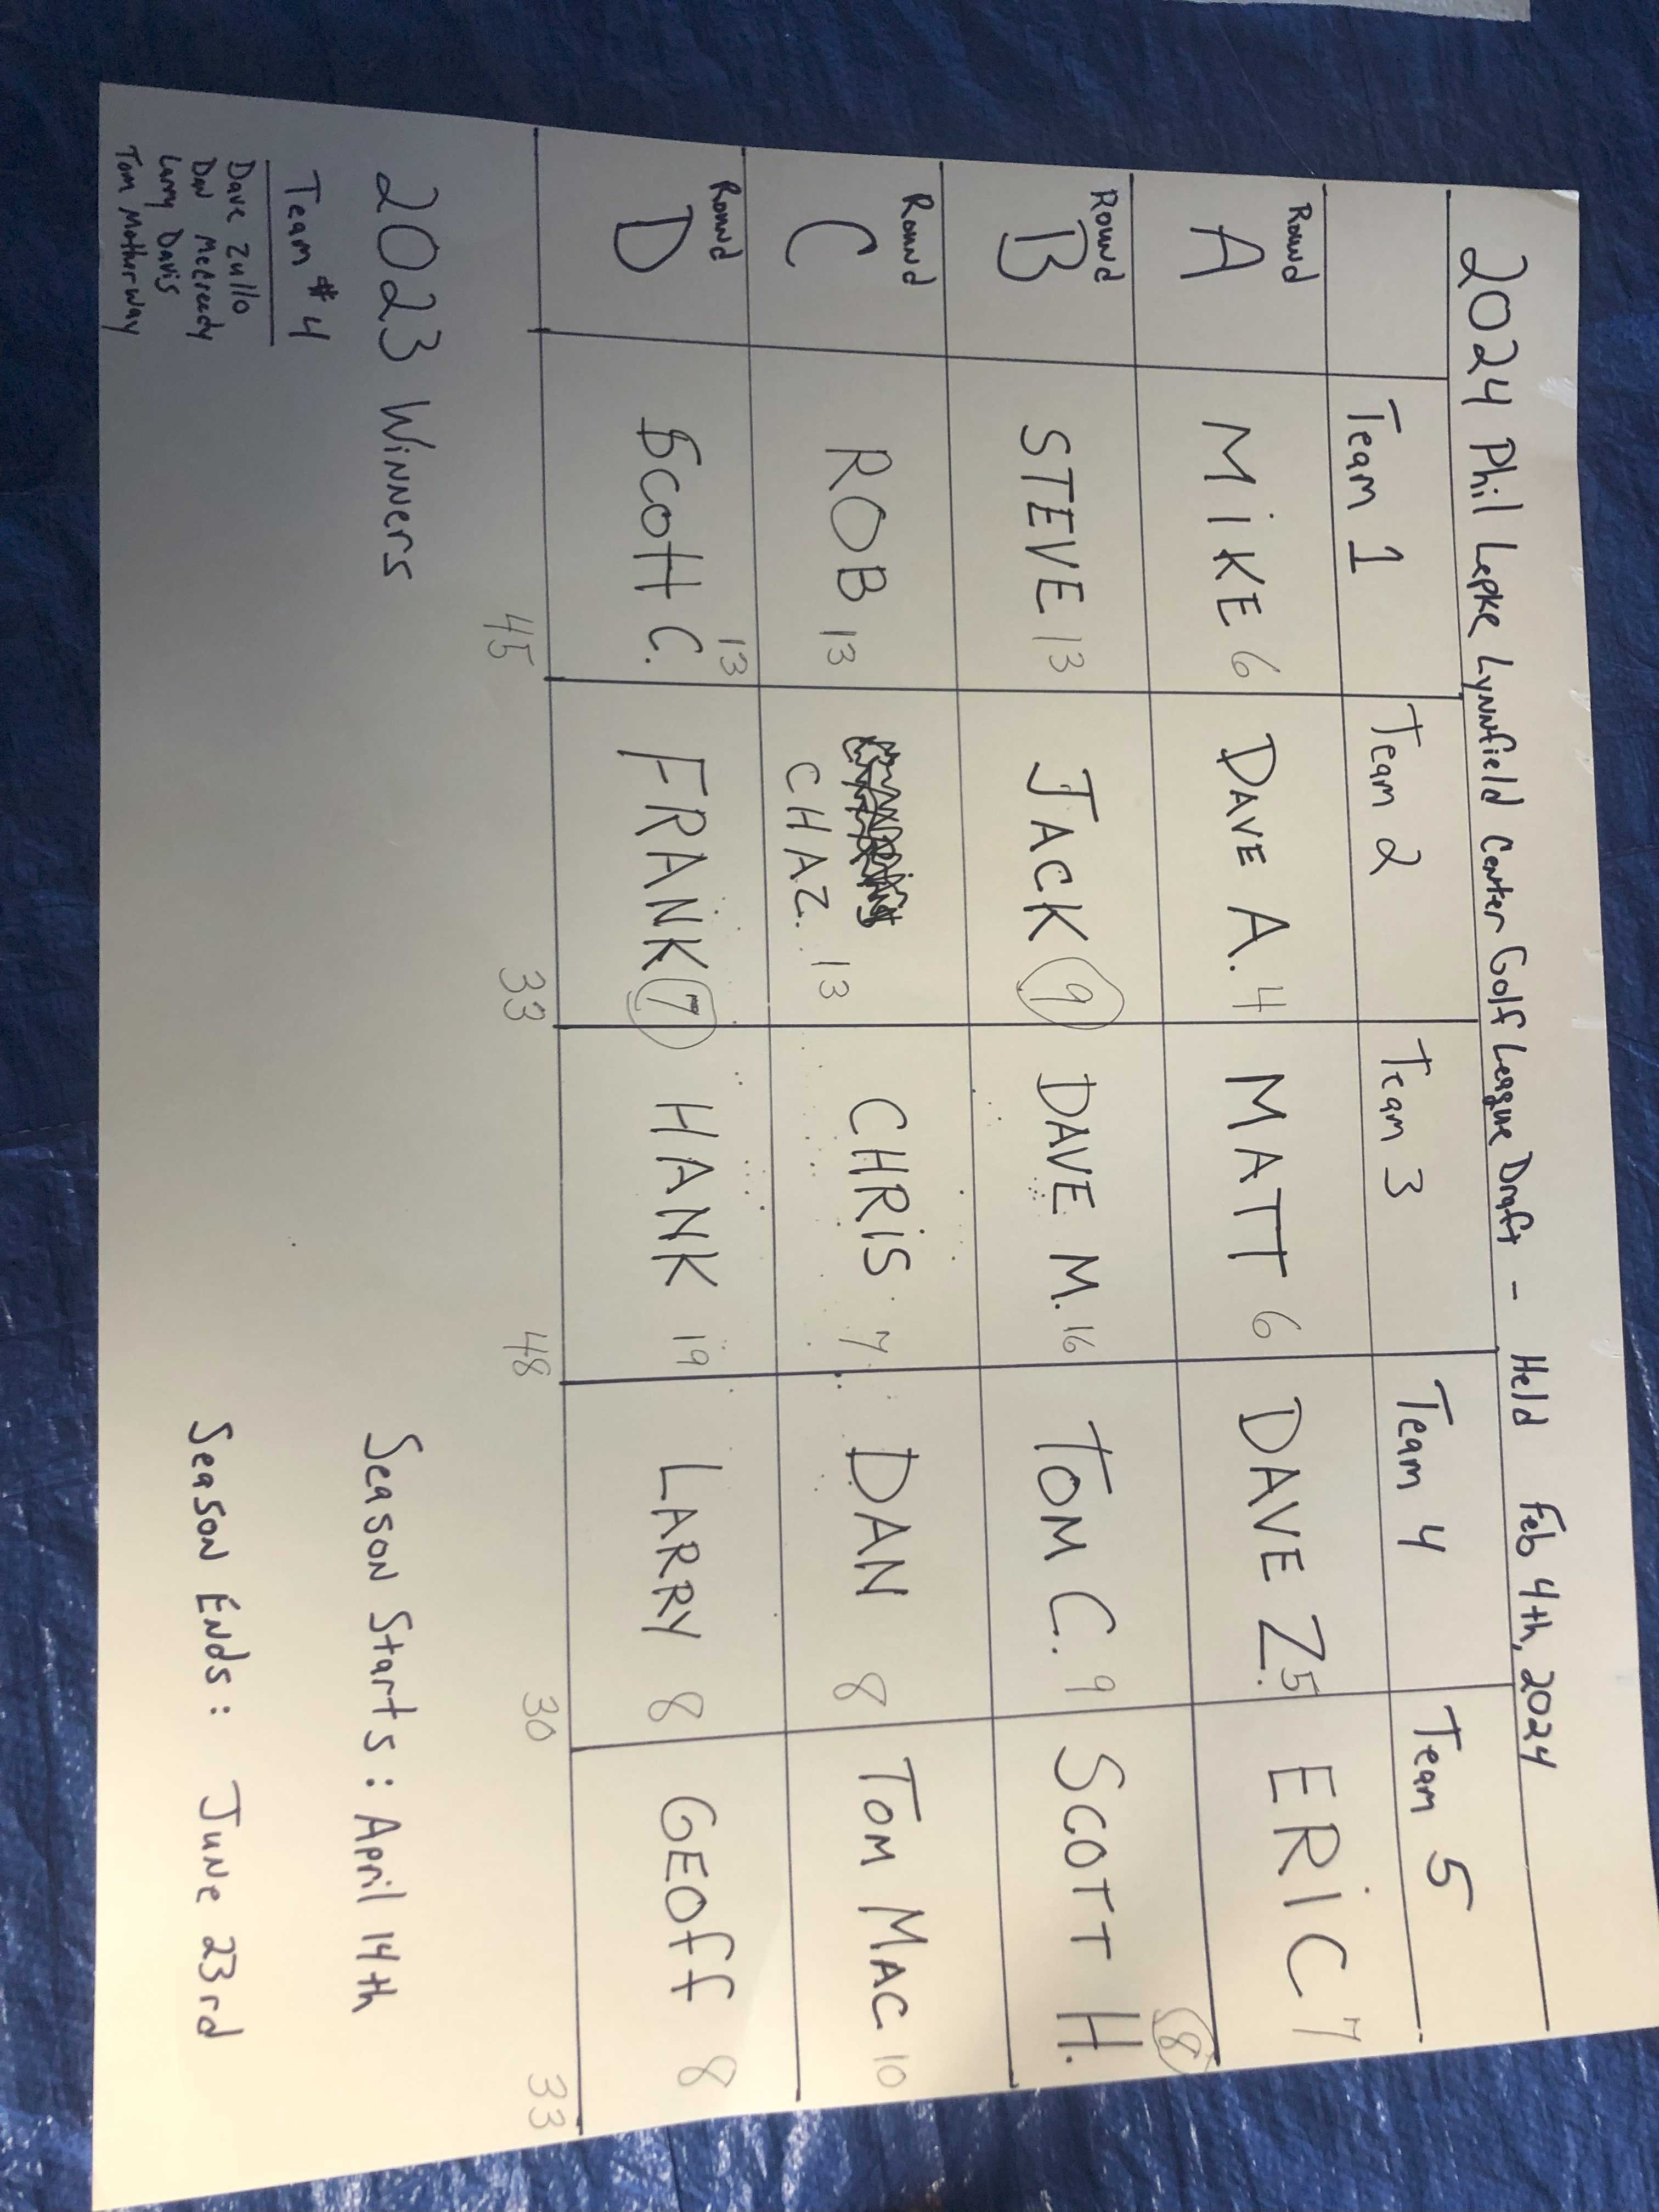 2024 Phil Lepke Lynnfield Center Golf League Draft - Held Feb 4th, 2024
Team 1 Team 2 Team 3 Team 4 Team 5
Round A MiKE 6 DAVE A. 4 MATT 6 DAVE Z. 5 ERiC 7
Round B STEVE 13 JACK 9 DAVE M. 16 TOM C. 9 SCOTT H. 8
Round C ROB 13 CHAZ. 13 CHRiS 7 DAN 8 TOM MAC 10
Round D Scott C. 13 FRANK 7 HANK 19 LARRY 8 GEOff 8
45 33 48 30 33
2023 Winners
Team #4
Dave Zullo
Dan McCready
Larry Davis
Tom Motherway
Season Starts: April 14th
Season Ends: June 23rd